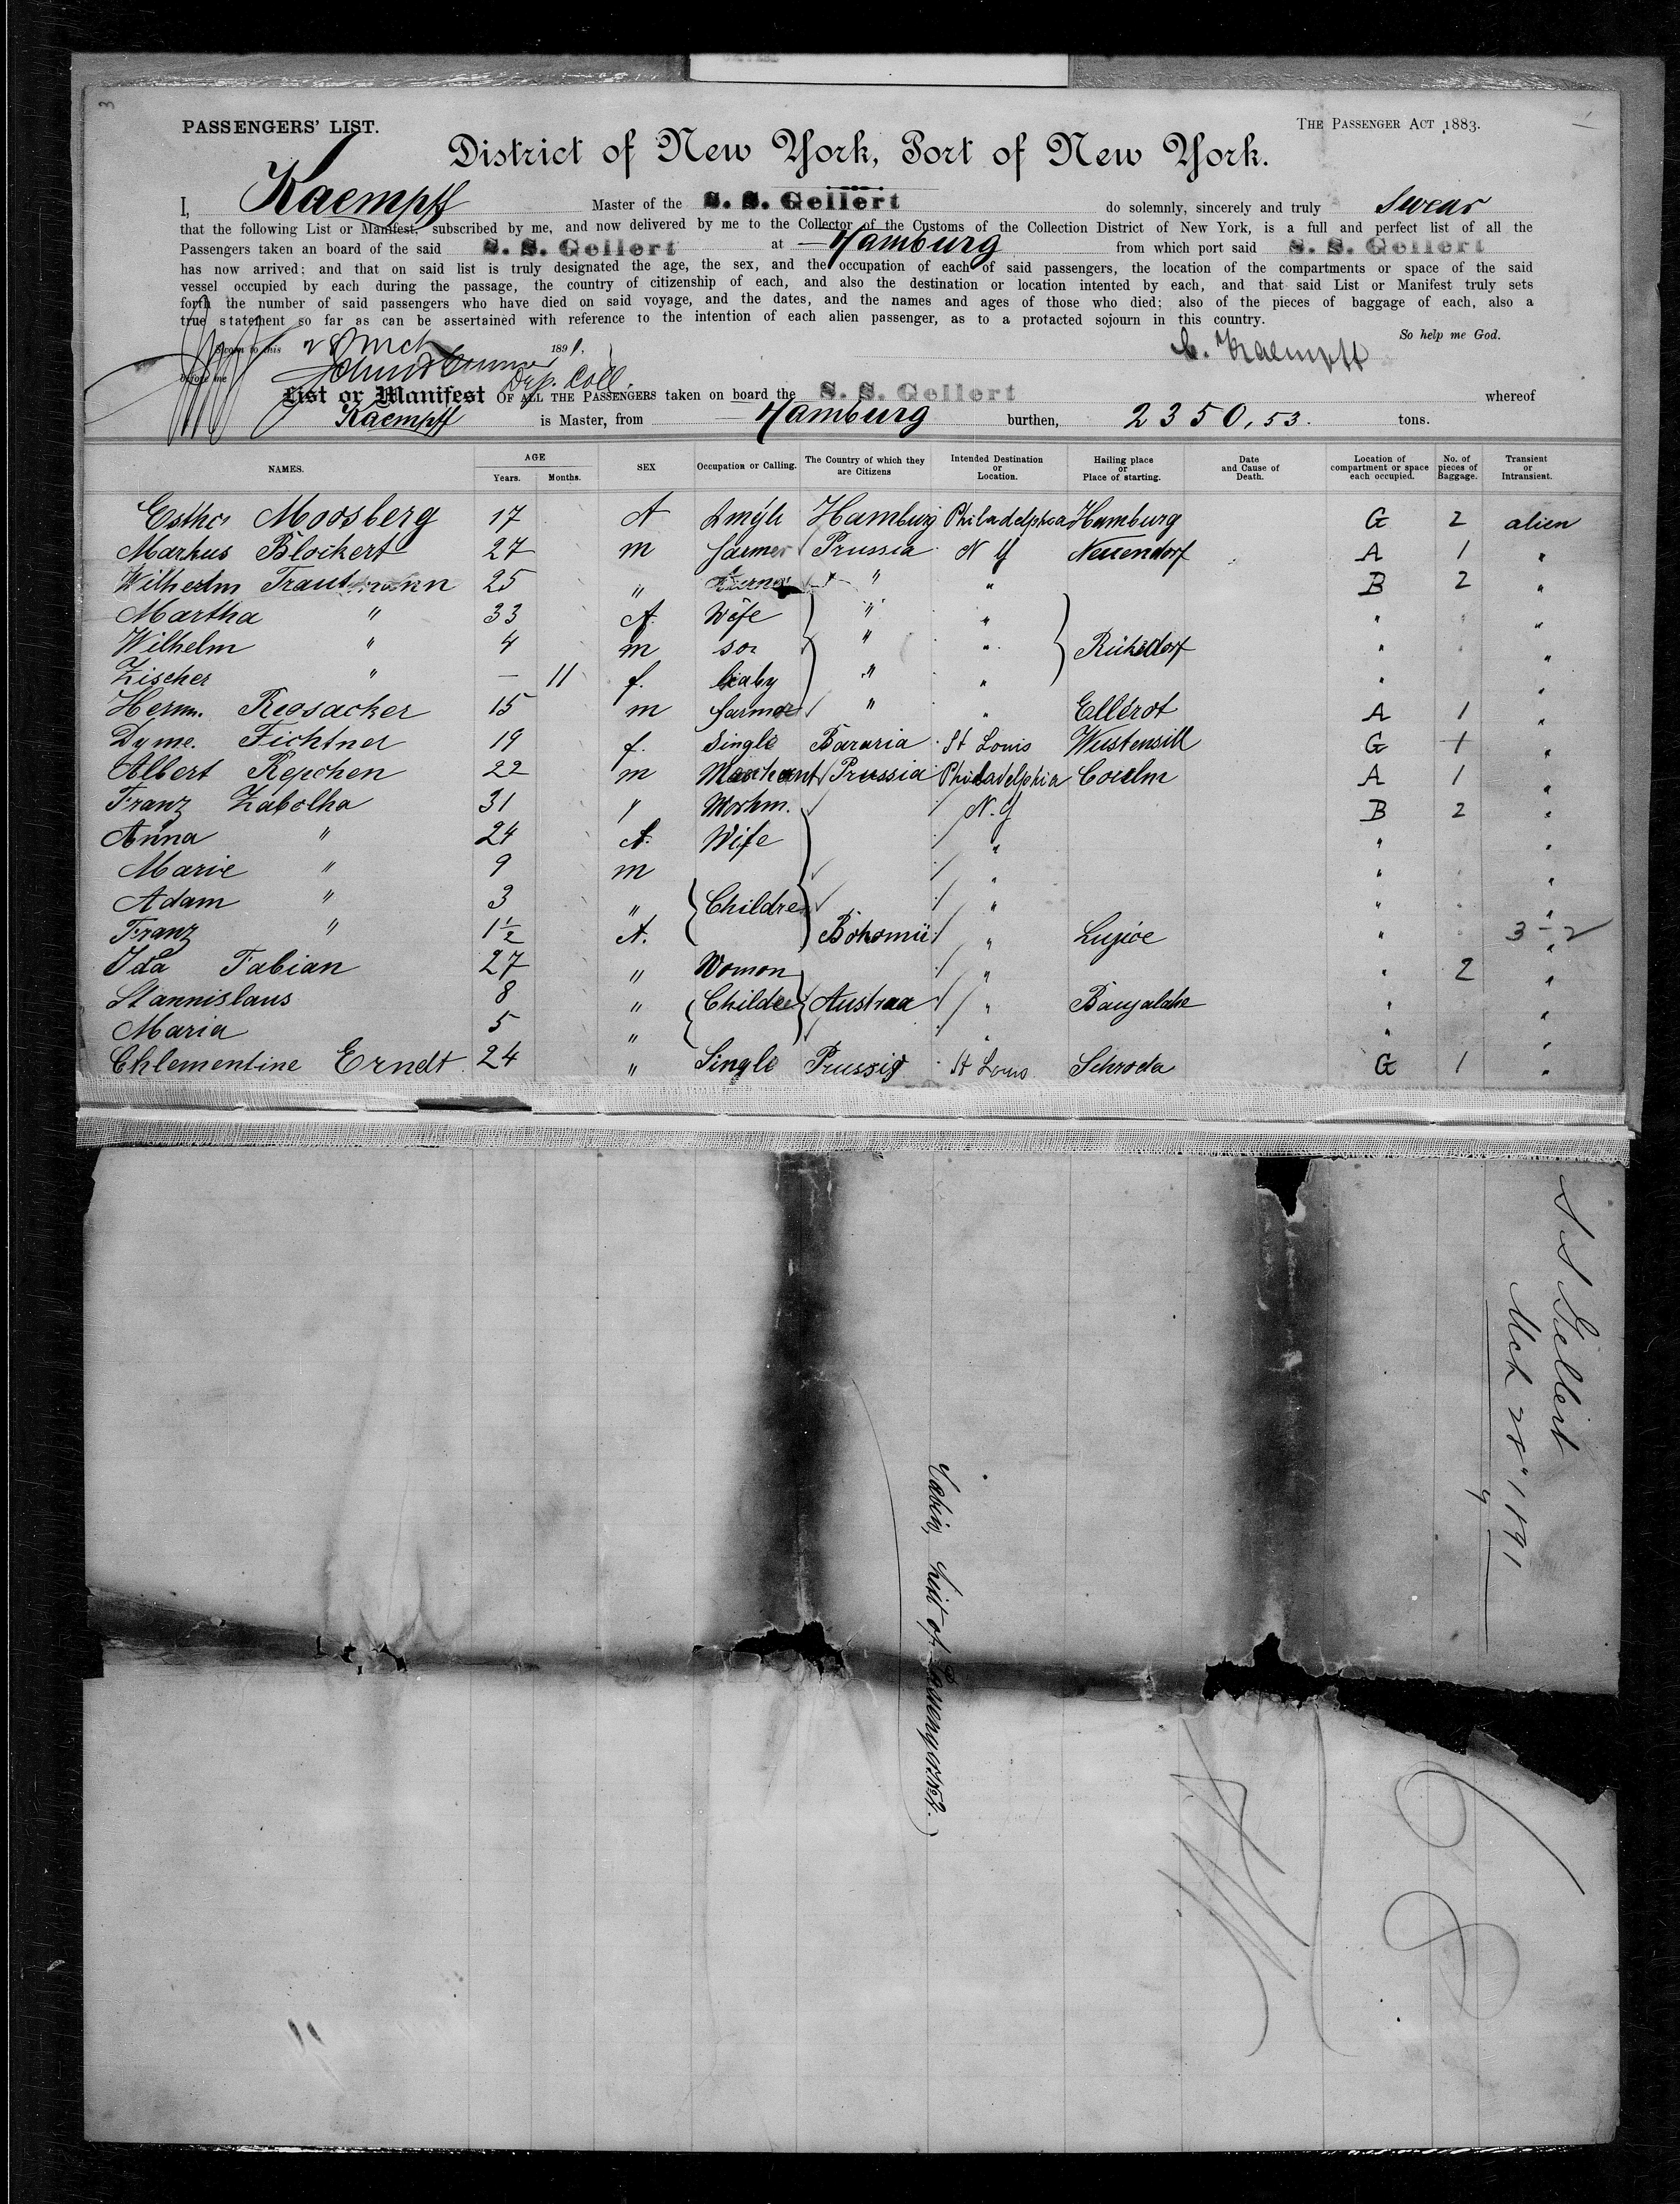 PASSENGERS' LIST.
THE PASSENGER ACT 1883.
District of New York, Port of New York.
I, Kaempff Master of the S. S. Gellert do solemnly, sincerely and truly swear
that the following List or Manifest, subscribed by me, and now delivered by me to the Collector of the Customs of the Collection District of New York, is a full and perfect list of all the
Passengers taken an board of the said S. S. Gellert at Hamburg from which port said S. S. Gellert
has now arrived; and that on said list is truly designated the age, the sex, and the occupation of each of said passengers, the location of the compartments or space of the said
vessel occupied by each during the passage, the country of citizenship of each, and also the destination or location intented by each, and that said List or Manifest truly sets
forth the number of said passengers who have died on said voyage, and the dates, and the names and ages of those who died; also of the pieces of baggage of each, also a
true statement so far as can be assertained with reference to the intention of each alien passenger, as to a protacted sojourn in this country.
So help me God.
Sworn to this 28 Mch 1891.
C. Kaempff
before me
Dep. Coll.
List or Manifest OF ALL THE PASSENGERS taken on board the S. S. Gellert whereof
Kaempff is Master, from Hamburg burthen, 2350,53. tons.
NAMES. AGE Years. Months. SEX Occupation or Calling. The Country of which they are Citizens Intended Destination or Location. Hailing place or Place of starting. Date and Cause of Death. Location of compartment or space each occupied. No. of pieces of Baggage. Transient or Intransient.
Moosberg 17 Hamburg Philadelphia Hamburg G 2 alien
Markus Blockert 27 m farmer Prussia N Y Neuendorf A 1 "
Wilhelm Trautmann 25 " " " B 2 "
Martha " 33 f. Wife " " " "
Wilhelm " 4 m son " " Rüksdorf " "
Zischer " — 11 f. baby " " " "
Herm. Rosacker 15 m farmer " " Ellerot A 1 "
Dyme. Fichtner 19 f. Single Bavaria St Louis Wustensill G 1 "
Albert Repchen 22 m Merchant Prussia Philadelphia Couelm A 1 "
Franz Zabolha 31 " Workm. N.Y B 2 "
Anna " 24 f. Wife " " "
Marie " 9 m " " "
Adam " 3 " Childre " " "
Franz " 1½ f. Bohomii " Lujice " 3 - 2 "
Ida Fabian 27 " Womon " " 2 "
Stannislaus 8 " Childre Austraa " Banjalake " "
Maria 5 " " " "
Chlementine Erndt 24 " Single Prussia St Louis Schroda G 1 "
S S Gellert
Mch 28" 1891
Cabin List of Passengers.